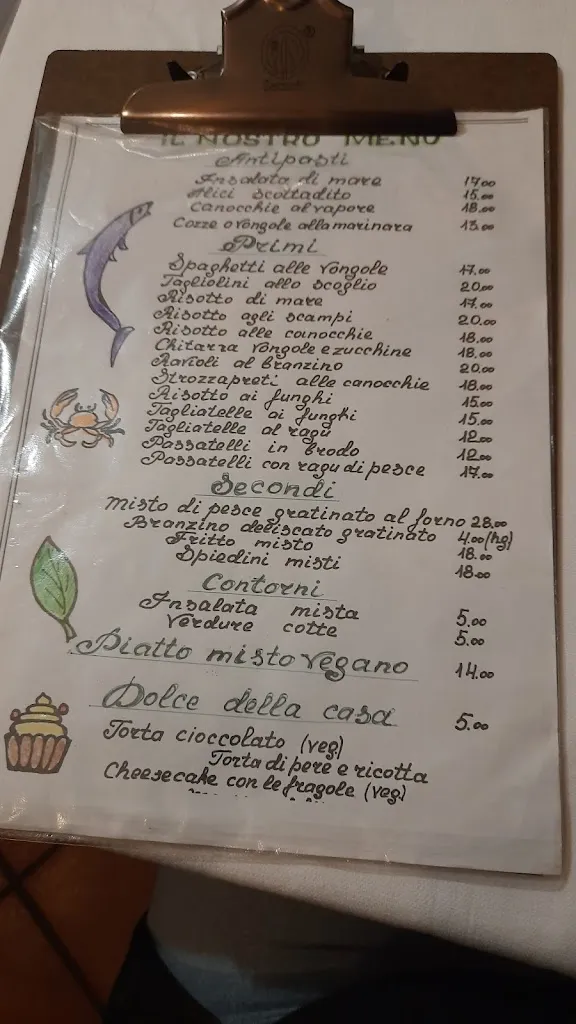 IL NOSTRO MENÙ
Antipasti
Insalata di mare 17.00
Alici scottadito 15.00
Canocchie al vapore 18.00
Cozze o vongole alla marinara 13.00
Primi
Spaghetti alle vongole 17.00
Tagliolini allo scoglio 20.00
Risotto di mare 17.00
Risotto agli scampi 20.00
Risotto alle canocchie 18.00
Chitarra vongole e zucchine 18.00
Ravioli al branzino 20.00
Strozzapreti alle canocchie 18.00
Risotto ai funghi 15.00
Tagliatelle ai funghi 15.00
Tagliatelle al ragù 12.00
Passatelli in brodo 12.00
Passatelli con ragu di pesce 17.00
Secondi
Misto di pesce gratinato al forno 28.00
Branzino deliscato gratinato 4.00 (hg)
Fritto misto 18.00
Spiedini misti 18.00
Contorni
Insalata mista 5.00
Verdure cotte 5.00
Piatto misto vegano 14.00
Dolce della casa 5.00
Torta cioccolato (veg)
Torta di pere e ricotta
Cheesecake con le fragole (veg)